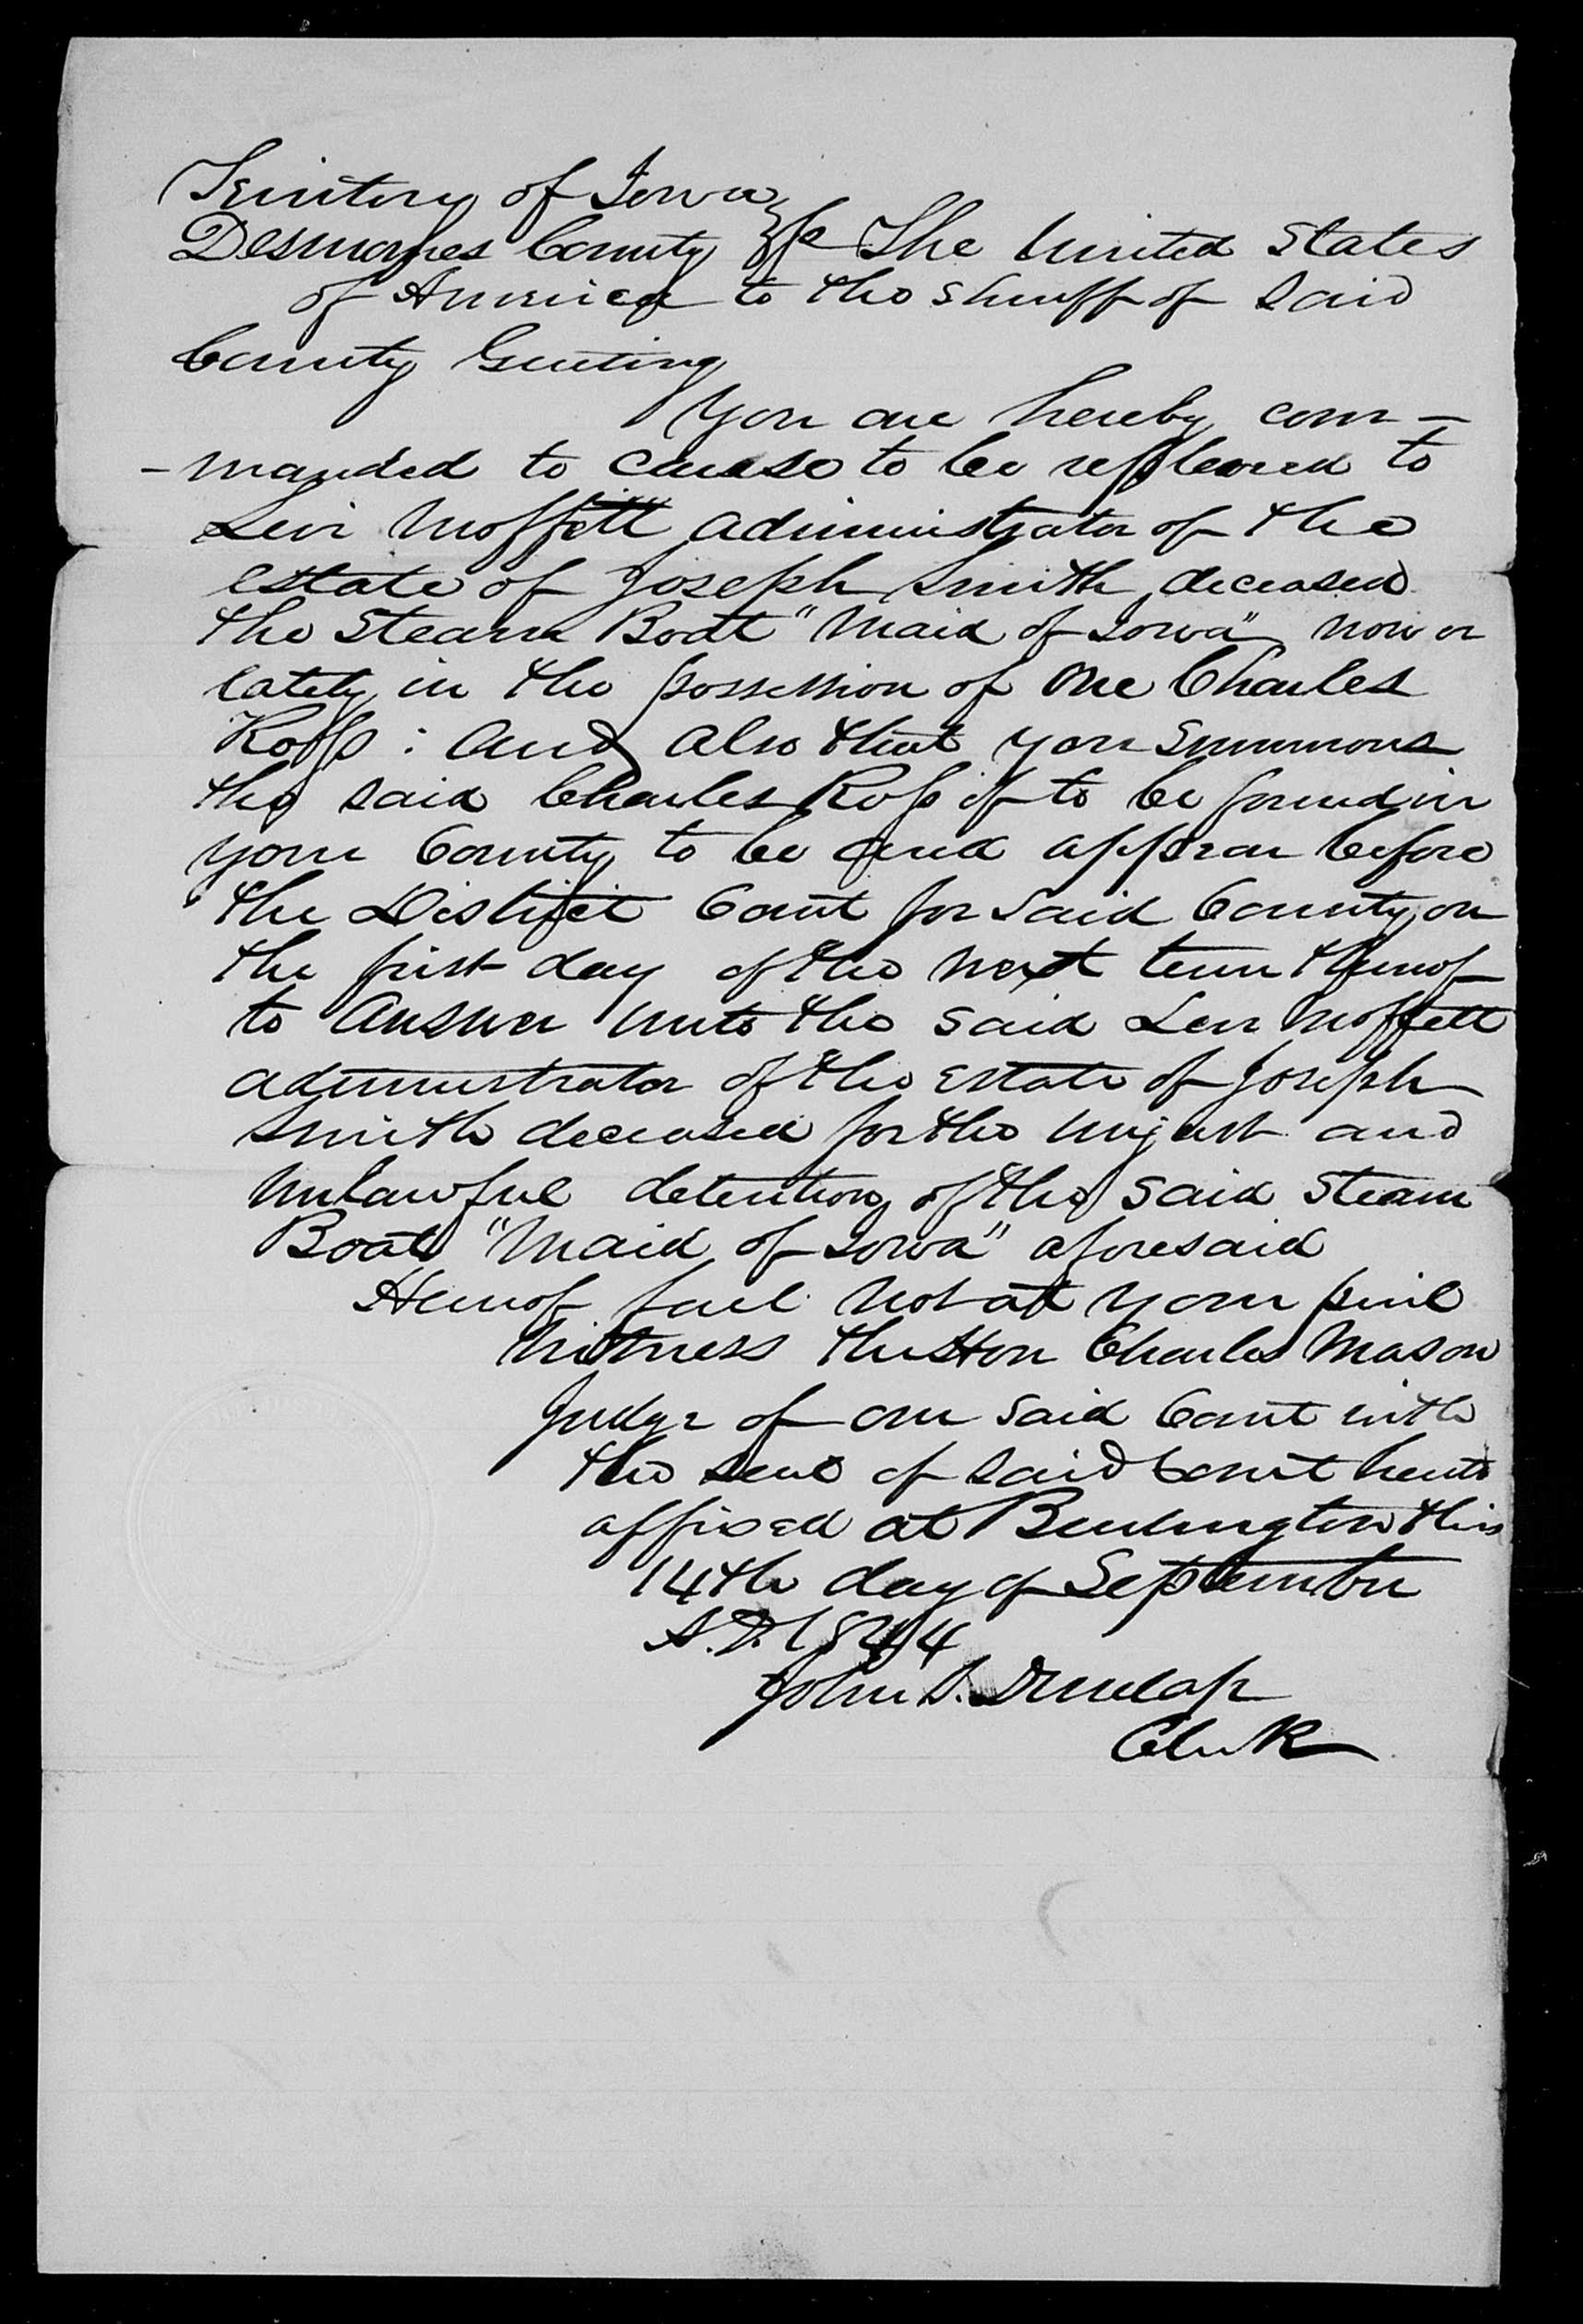 Territory of Iowa
Desmoines County } ss The United States
of America to the Sheriff of Said
County Greeting
You are hereby com-
-manded to cause to be replevied to
Levi Moffitt administrator of the
estate of Joseph Smith deceased
the Steam Boat "Maid of Iowa" now or
lately in the possession of One Charles
Ross : and also that you Summons
the said Charles Ross if to be found in
your County to be and appear before
the District Court for said County on
the first day of the next term thereof
to answer unto the said Levi Moffett
administrator of the estate of Joseph
Smith deceased for the unjust and
unlawful detention of the said Steam
Boat "Maid of Iowa" aforesaid
Hereof fail not at your peril
Witness the Hon Charles Mason
Judge of our said Court with
the seal of said Court hereto
affixed at Burlington this
14th day of September
A.D. 1844
John S. Dunlap
Clerk